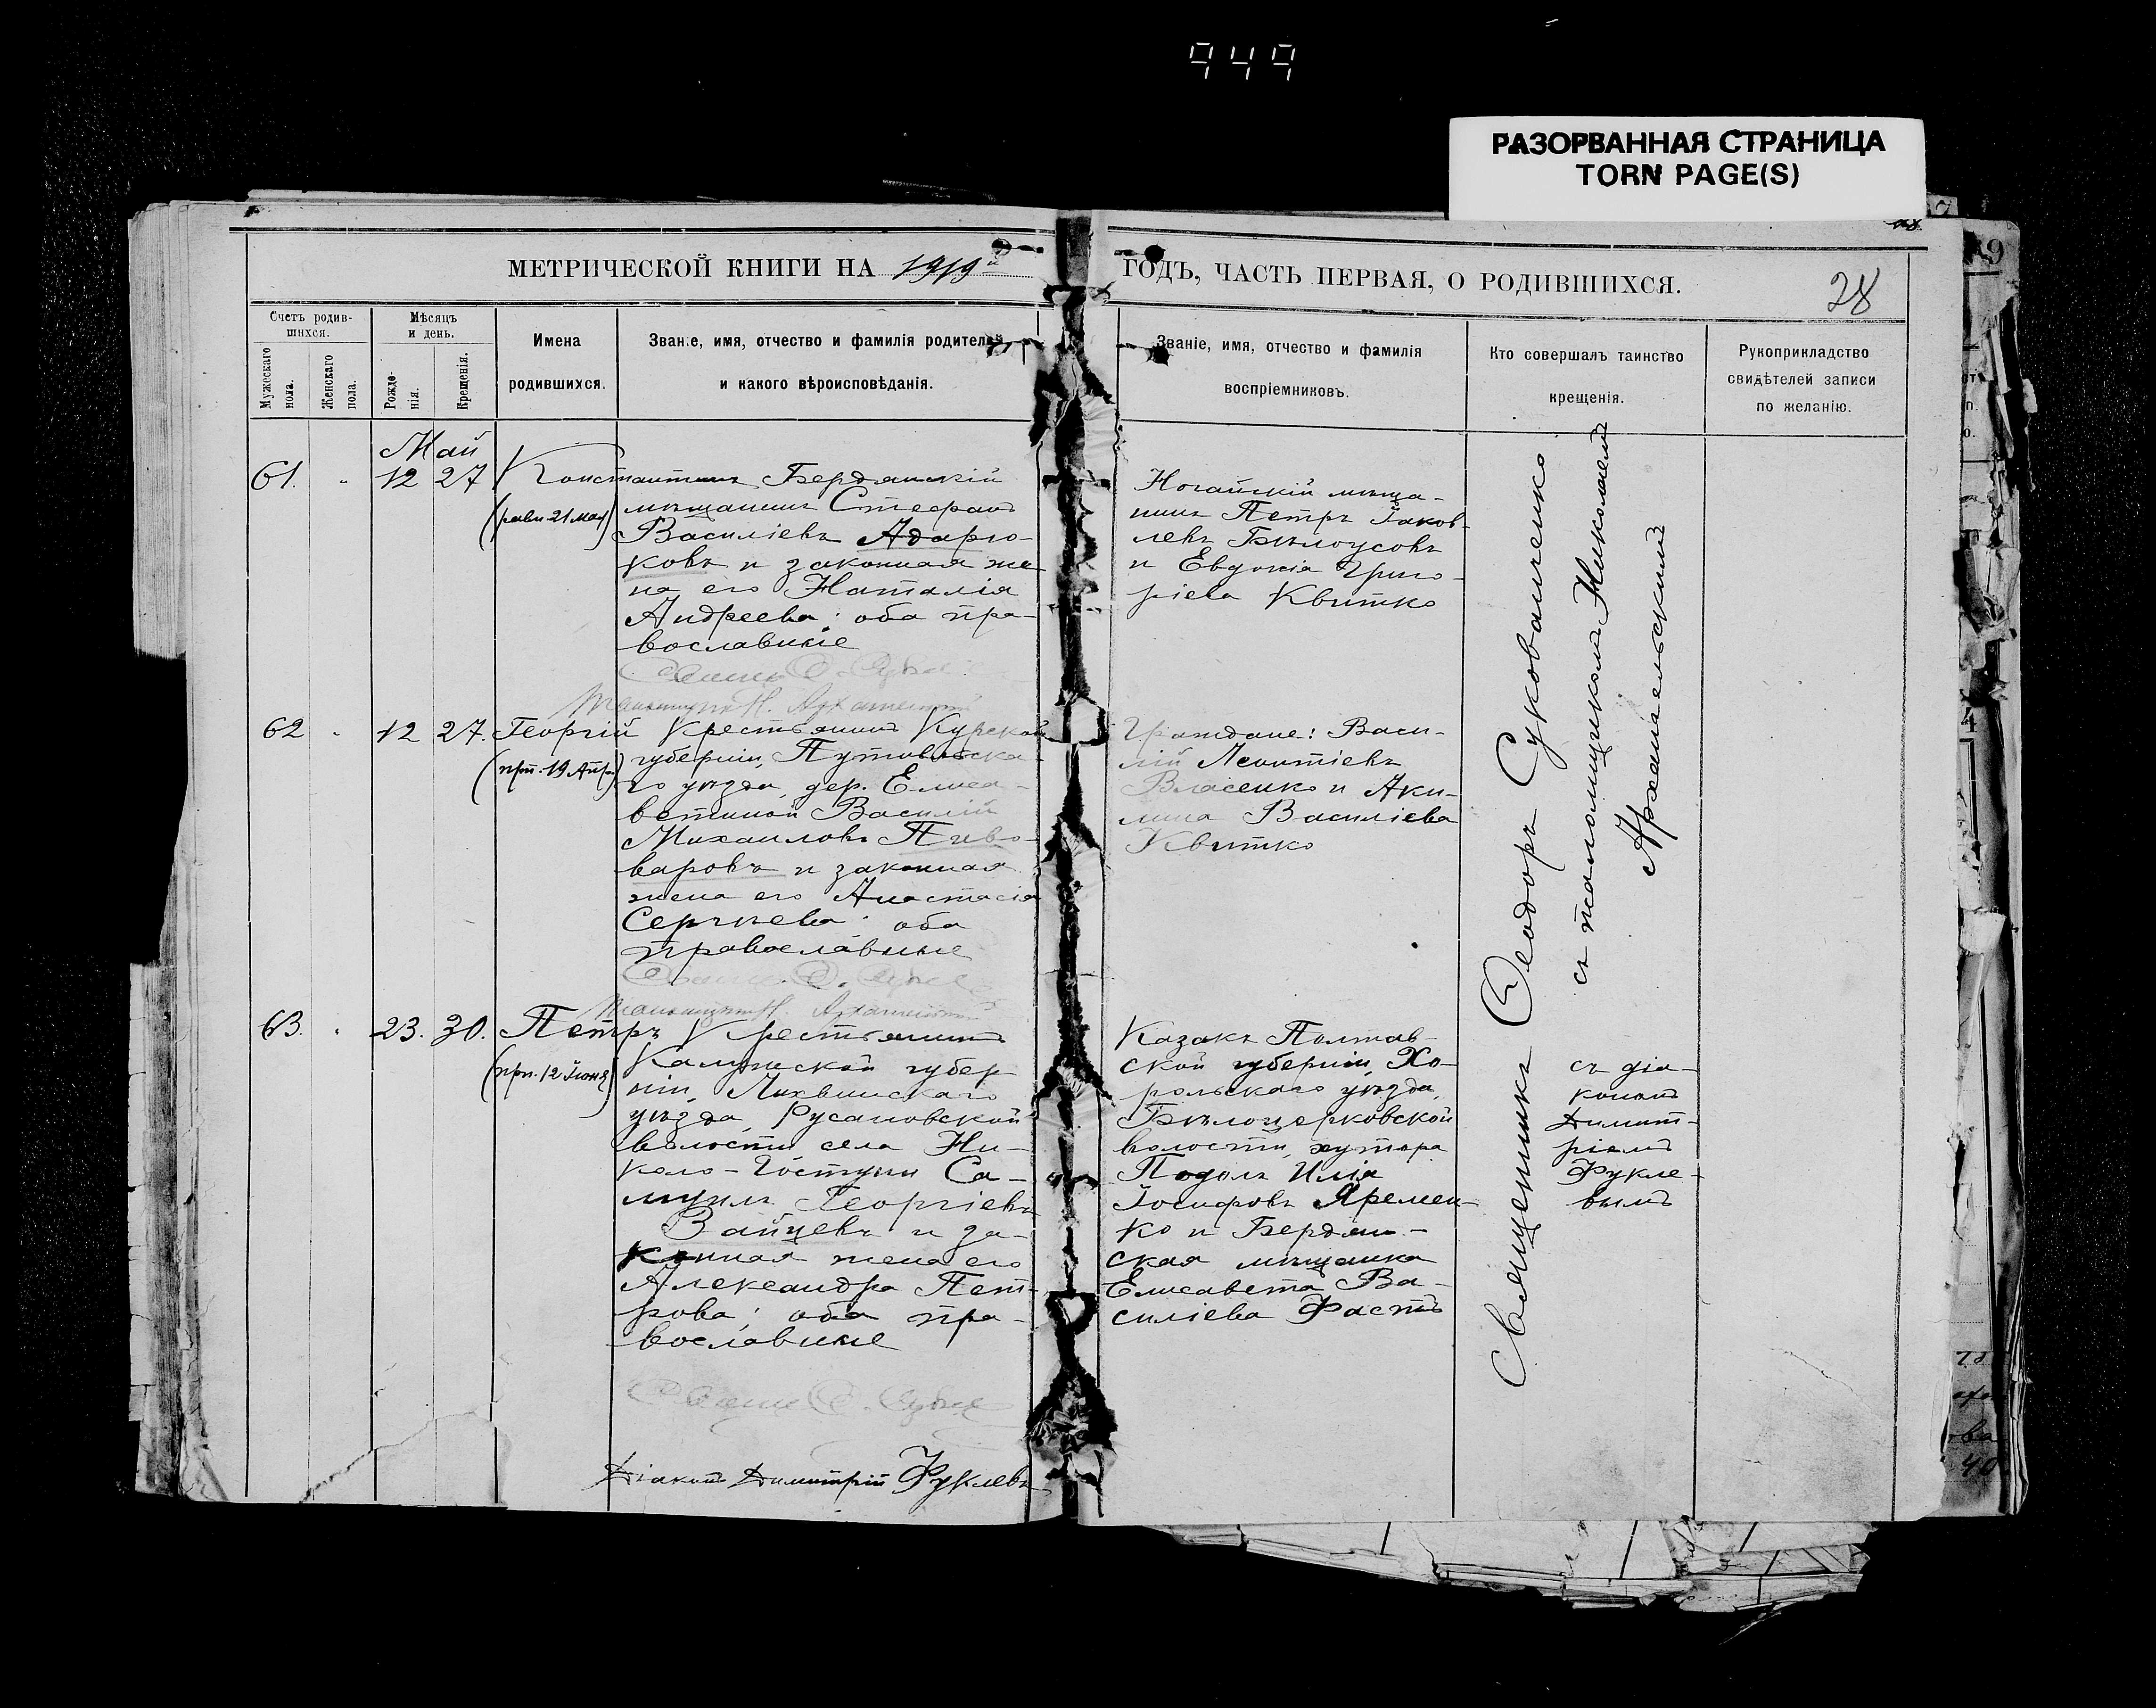 949
РАЗОРВАННАЯ СТРАНИЦА
TORN PAGE(S)
МЕТРИЧЕСКОЙ КНИГИ НА 1919й
ГОДЪ, ЧАСТЬ ПЕРВАЯ, О РОДИВШИХСЯ.
28
Счетъ родив-
шихся.
Мужескаго
пола.
Женскаго
пола.
Мѣсяцъ
и день.
Рожде-
нія.
Крещенія.
Имена
родившихся.
Званіе, имя, отчество и фамилія родителей
и какого вѣроисповѣданія.
Званіе, имя, отчество и фамилія
воспріемниковъ.
Кто совершалъ таинство
крещенія.
Рукоприкладство
свидѣтелей записи
по желанію.
Май
61. " 12 27
Константинъ
(равн 21 мая)
Бердянскій
мѣщанинъ Стефанъ
Василіевъ Адарю-
ковъ и законная же-
на его Наталія
Андреева: оба пра-
вославные
Ногайскій мѣща-
нинъ Петръ Іаков-
левъ Бѣлоусовъ
и Евдокія Григо-
ріева Квитко
62 " 12 27.
Георгій
(прп. 19 Апр.)
Крестьянинъ Курской
губерніи, Путивльска-
го уѣзда, дер. Елиса-
ветиной Василій
Михаиловъ Пиво-
варовъ и законная
жена его Анастасія
Сергѣева: оба
православные
Граждане: Васи-
лій Леонтіевъ
Власенко и Аки-
лина Василіева
Квитко
63. " 23. 30.
Петръ
(прп. 12 Іюня)
Крестьянинъ
Калужской губер-
ніи, Лихвинскаго
уѣзда, Русановской
волости, села Ни-
коло-Гостуни Са-
муилъ Георгіевъ
Зайцевъ и за-
конная жена его
Александра Пет-
рова; оба пра-
вославные
Діаконъ Димитрій Фуклевъ
Казакъ Полтав-
ской губерніи, Хо-
рольскаго уѣзда,
Бѣлоцерковской
волости, хутора
Подолъ Илія
Іосифовъ Яремен-
ко и Бердян-
ская мѣщанка
Елисавета Ва-
силіева Фастъ
Священникъ Ѳеодоръ Суковаченко
съ псаломщикомъ Николаемъ
Архангельскимъ
съ діа-
кономъ
Димит-
ріемъ
Фукле-
вымъ